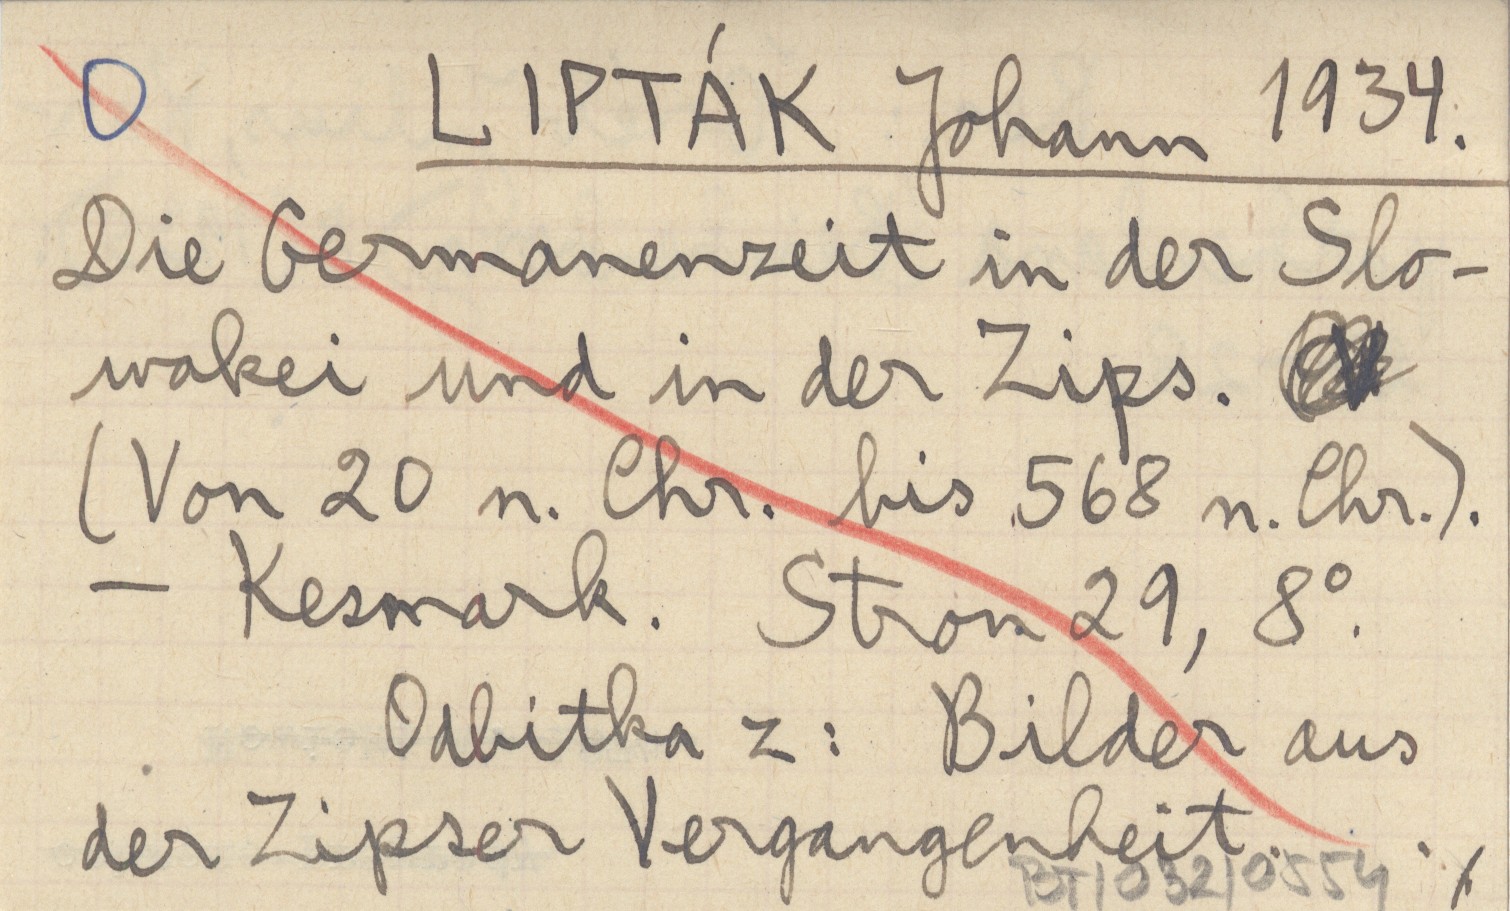 O LIPTÁK Johann 1934.
Die Germanenzeit in der Slo-
wakei und in der Zips.
(Von 20 n. Chr. bis 568 n. Chr.).
— Kesmark. Stron 29, 8°.
Odbitka z: Bilder aus
der Zipser Vergangenheit.
BT/032/0554